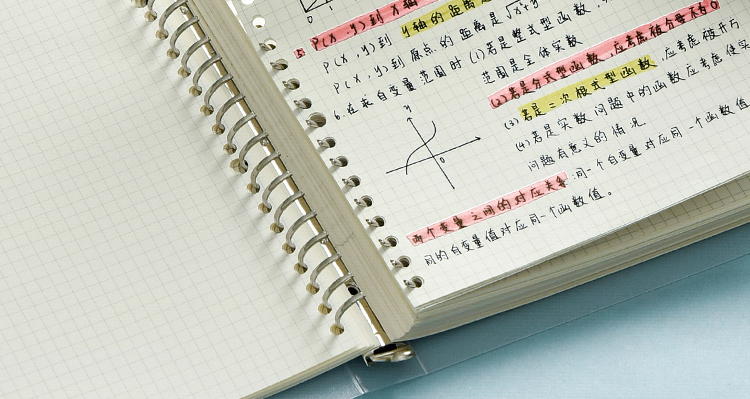 5. P(X,y)到X轴
P(X,y)到y轴的距离是
P(X,y)到原点的距离是√x²+y²
6.在求自变量范围时(1)若是整式型函数,
范围是全体实数
(2)若是分式型函数,应考虑使分母不为0
(3)若是二次根式型函数,应考虑被开方
(4)若是实数问题中的函数应考虑使实
问题有意义的情况
y
0
两个变量之间的对应关系:同一个自变量对应同一个函数值
同的自变量值对应同一个函数值。